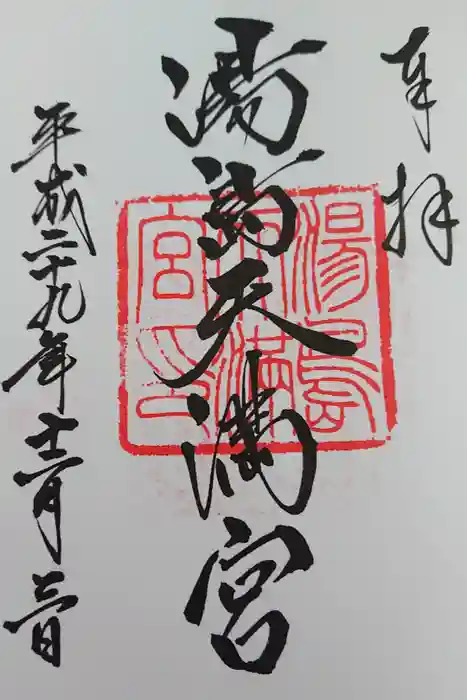 奉拝
湯島天満宮
平成二十九年十二月二日
湯島
天満
宮印